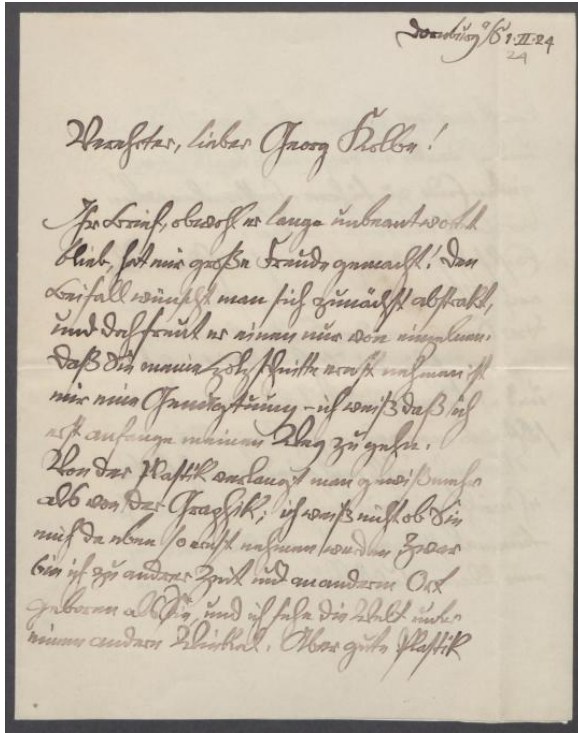 Dornburg a/S 1·II·24
24
Verehrter, lieber Georg Kolbe!
Ihr Brief, obwohl er lange unbeantwortet
blieb, hat mir große Freude gemacht! Den
Beifall wünscht man sich zunächst abstrakt,
und doch freut er einen nur von einzelnen.
Daß Sie meine Holzschnitte ernst nehmen ist
mir eine Genugtuung – ich weiß daß ich
erst anfange meinen Weg zu gehn.
Von der Plastik verlangt man gewiß mehr
als von der Graphik; ich weiß nicht ob Sie
mich da eben so ernst nehmen werden. Zwar
bin ich zu andrer Zeit und an anderm Ort
geboren als Sie, und ich sehe die Welt unter
einem andern Winkel. Aber gute Plastik